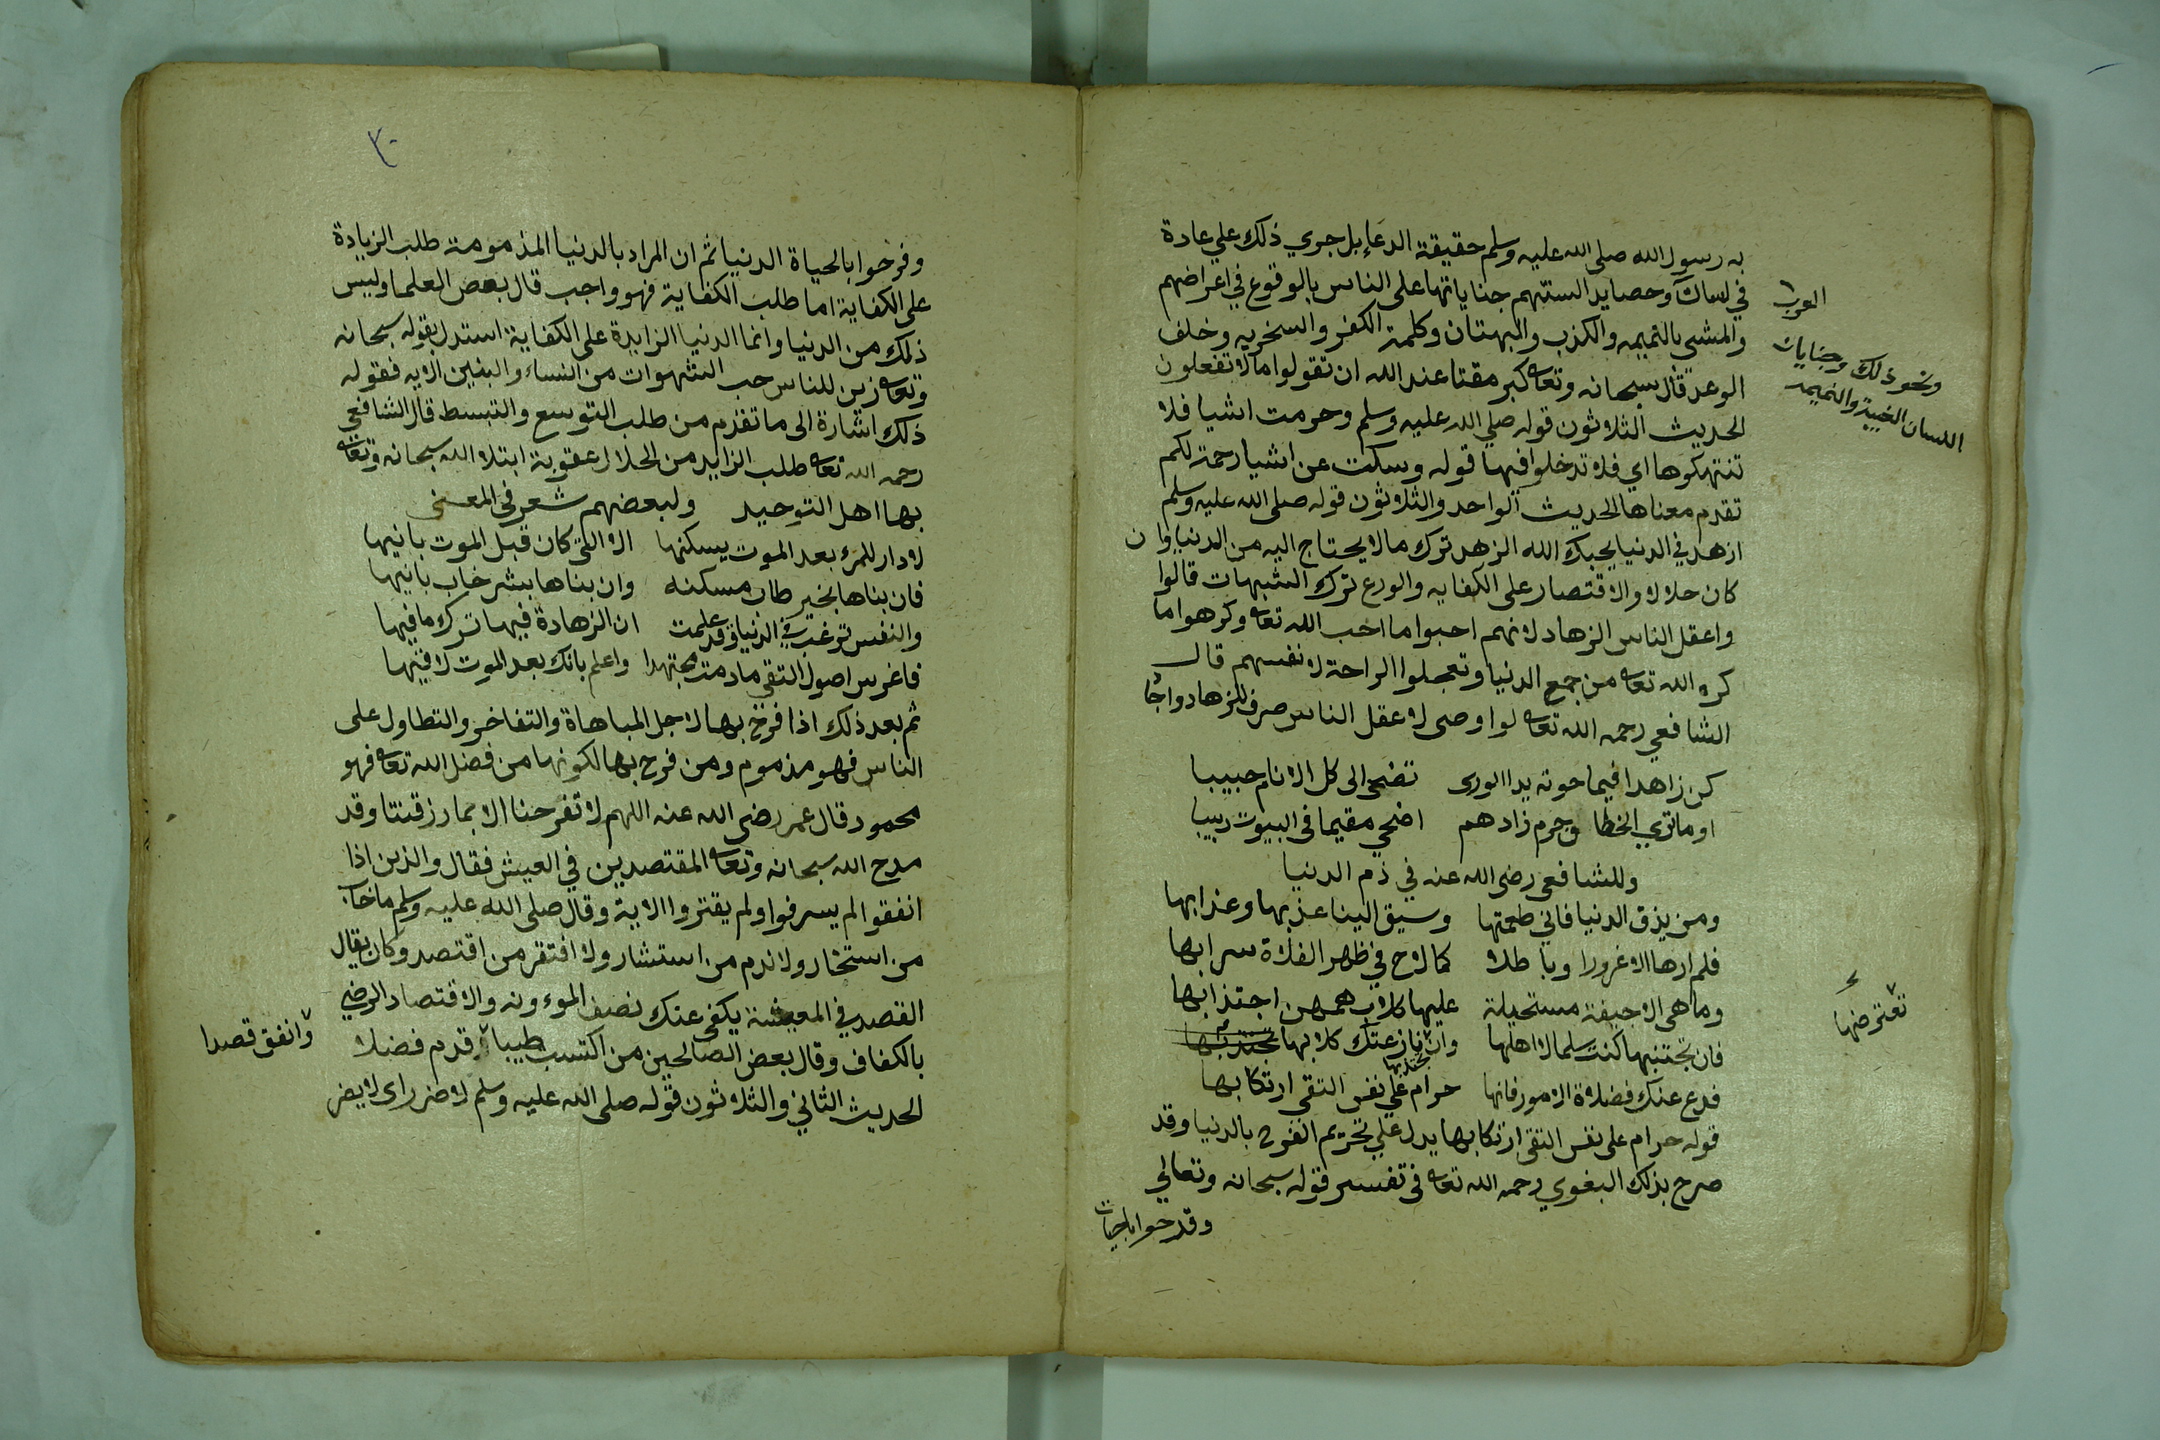 به رسول الله صلى الله عليه وسلم حقيقة الدعاء بل جري ذلك علي عادة
العرب
في لسانك وحصايد السنتهم جناياتها على الناس بالوقوع في اعراضهم
والمشي بالنميمه والكذب والبهتان وكلمة الكفر والسخريه وخلف
ونحو ذلك وجنايات
اللسان الغيبة والنميمه
الوعد قال سبحانه وتعا كبر مقتا عند الله ان تقولوا مالا تفعلون
الحديث الثلاثون قوله صلي الله عليه وسلم وحرمت اشيا فلا
تنتهكوها اي فلا تدخلوا فيها قوله وسكت عن اشيا رحمة لكم
تقدم معناها الحديث الواحد والثلاثون قوله صلى الله عليه وسلم
ازهد في الدنيا يحبك الله الزهد ترك مالا يحتاج اليه من الدنيا وان
كان حلالا والاقتصار على الكفايه والورع ترك الشبهات قالوا
واعقل الناس الزهاد لانهم احبوا ما احب الله تعا وكرهوا ما
كره الله تعا من جمع الدنيا وتعجلوا الراحة لانفسهم قال
الشافعي رحمه الله تعا لو اوصي لاعقل الناس صرف للزهاد
كن زاهدا فيما حوته يدا الورى تضحى الى كل الانام حبيبا
اوما تري الخطاف حرم زادهم اضحي مقيما في البيوت ربيبا
وللشافعي رضى الله عنه في ذم الدنيا
ومن يذق الدنيا فاني طعمتها وسيق الينا عذبها وعذابها
فلم ارها الا غرورا وباطلا كما لاح في ظهر الفلاة سرابها
وما هي الا جيفة مستحيلة عليها كلاب همهن اجتذابها
فان تجتنبها كنت سلما لاهلها وان نازعتك كلابها
تجتذبها
فدع عنك فضلاة الامور فانها حرام علي نفس التقي ارتكابها
قوله حرام على نفس التقي ارتكابها يدل علي تحريم الفرح بالدنيا وقد
صرح بذلك البغوي رحمه الله تعا في تفسير قوله سبحانه وتعالي
٣٠
وفرحوا بالحياة الدنيا ثم ان المراد بالدنيا المذمومة طلب الزيادة
على الكفاية اما طلب الكفاية فهو واجب قال بعض العلما وليس
ذلك من الدنيا وانما الدنيا الزايدة على الكفاية استدل بقوله سبحانه
وتعا زين للناس حب الشهوات من النساء والبنين الايه فقوله
ذلك اشارة الى ما تقدم من طلب التوسع والتبسط قال الشافعي
رحمه الله تعا طلب الزايد من الحلال عقوبة ابتلا الله سبحانه وتعا
بها اهل التوحيد ولبعضهم شعر في المعنى
لا دار للمرء بعد الموت يسكنها الا التي كان قبل الموت بانيها
فان بناها بخير طاب مسكنه وان بناها بشر خاب بانيها
والنفس ترغب في الدنيا وقد علمت ان الزهادة فيها ترك ما فيها
فاغرس اصول التقى مادمت مجتهدا واعلم بانك بعد الموت لاقيها
ثم بعد ذلك اذا فرح بها لاجل المباهاة والتفاخر والتطاول على
الناس فهو مذموم ومن فرح بها لكونها من فضل الله تعا فهو
محمود قال عمر رضي الله عنه اللهم لا تفرحنا الا بما رزقتنا وقد
مدح الله سبحانه وتعا المقتصدين في العيش فقال والذين اذا
انفقوا لم يسرفوا ولم يقتروا الاية وقال صلى الله عليه وسلم ما خاب
من استخار ولا ندم من استشار ولا افتقر من اقتصد وكان يقال
القصد في المعيشة يكفي عنك نصف الموءونه والاقتصاد الرضي
بالكفاف وقال بعض الصالحين من اكتسب طيبا قدم فضلا
وانفق قصدا
الحديث الثاني والثلاثون قوله صلى الله عليه وسلم لا ضرر اي لا يضر